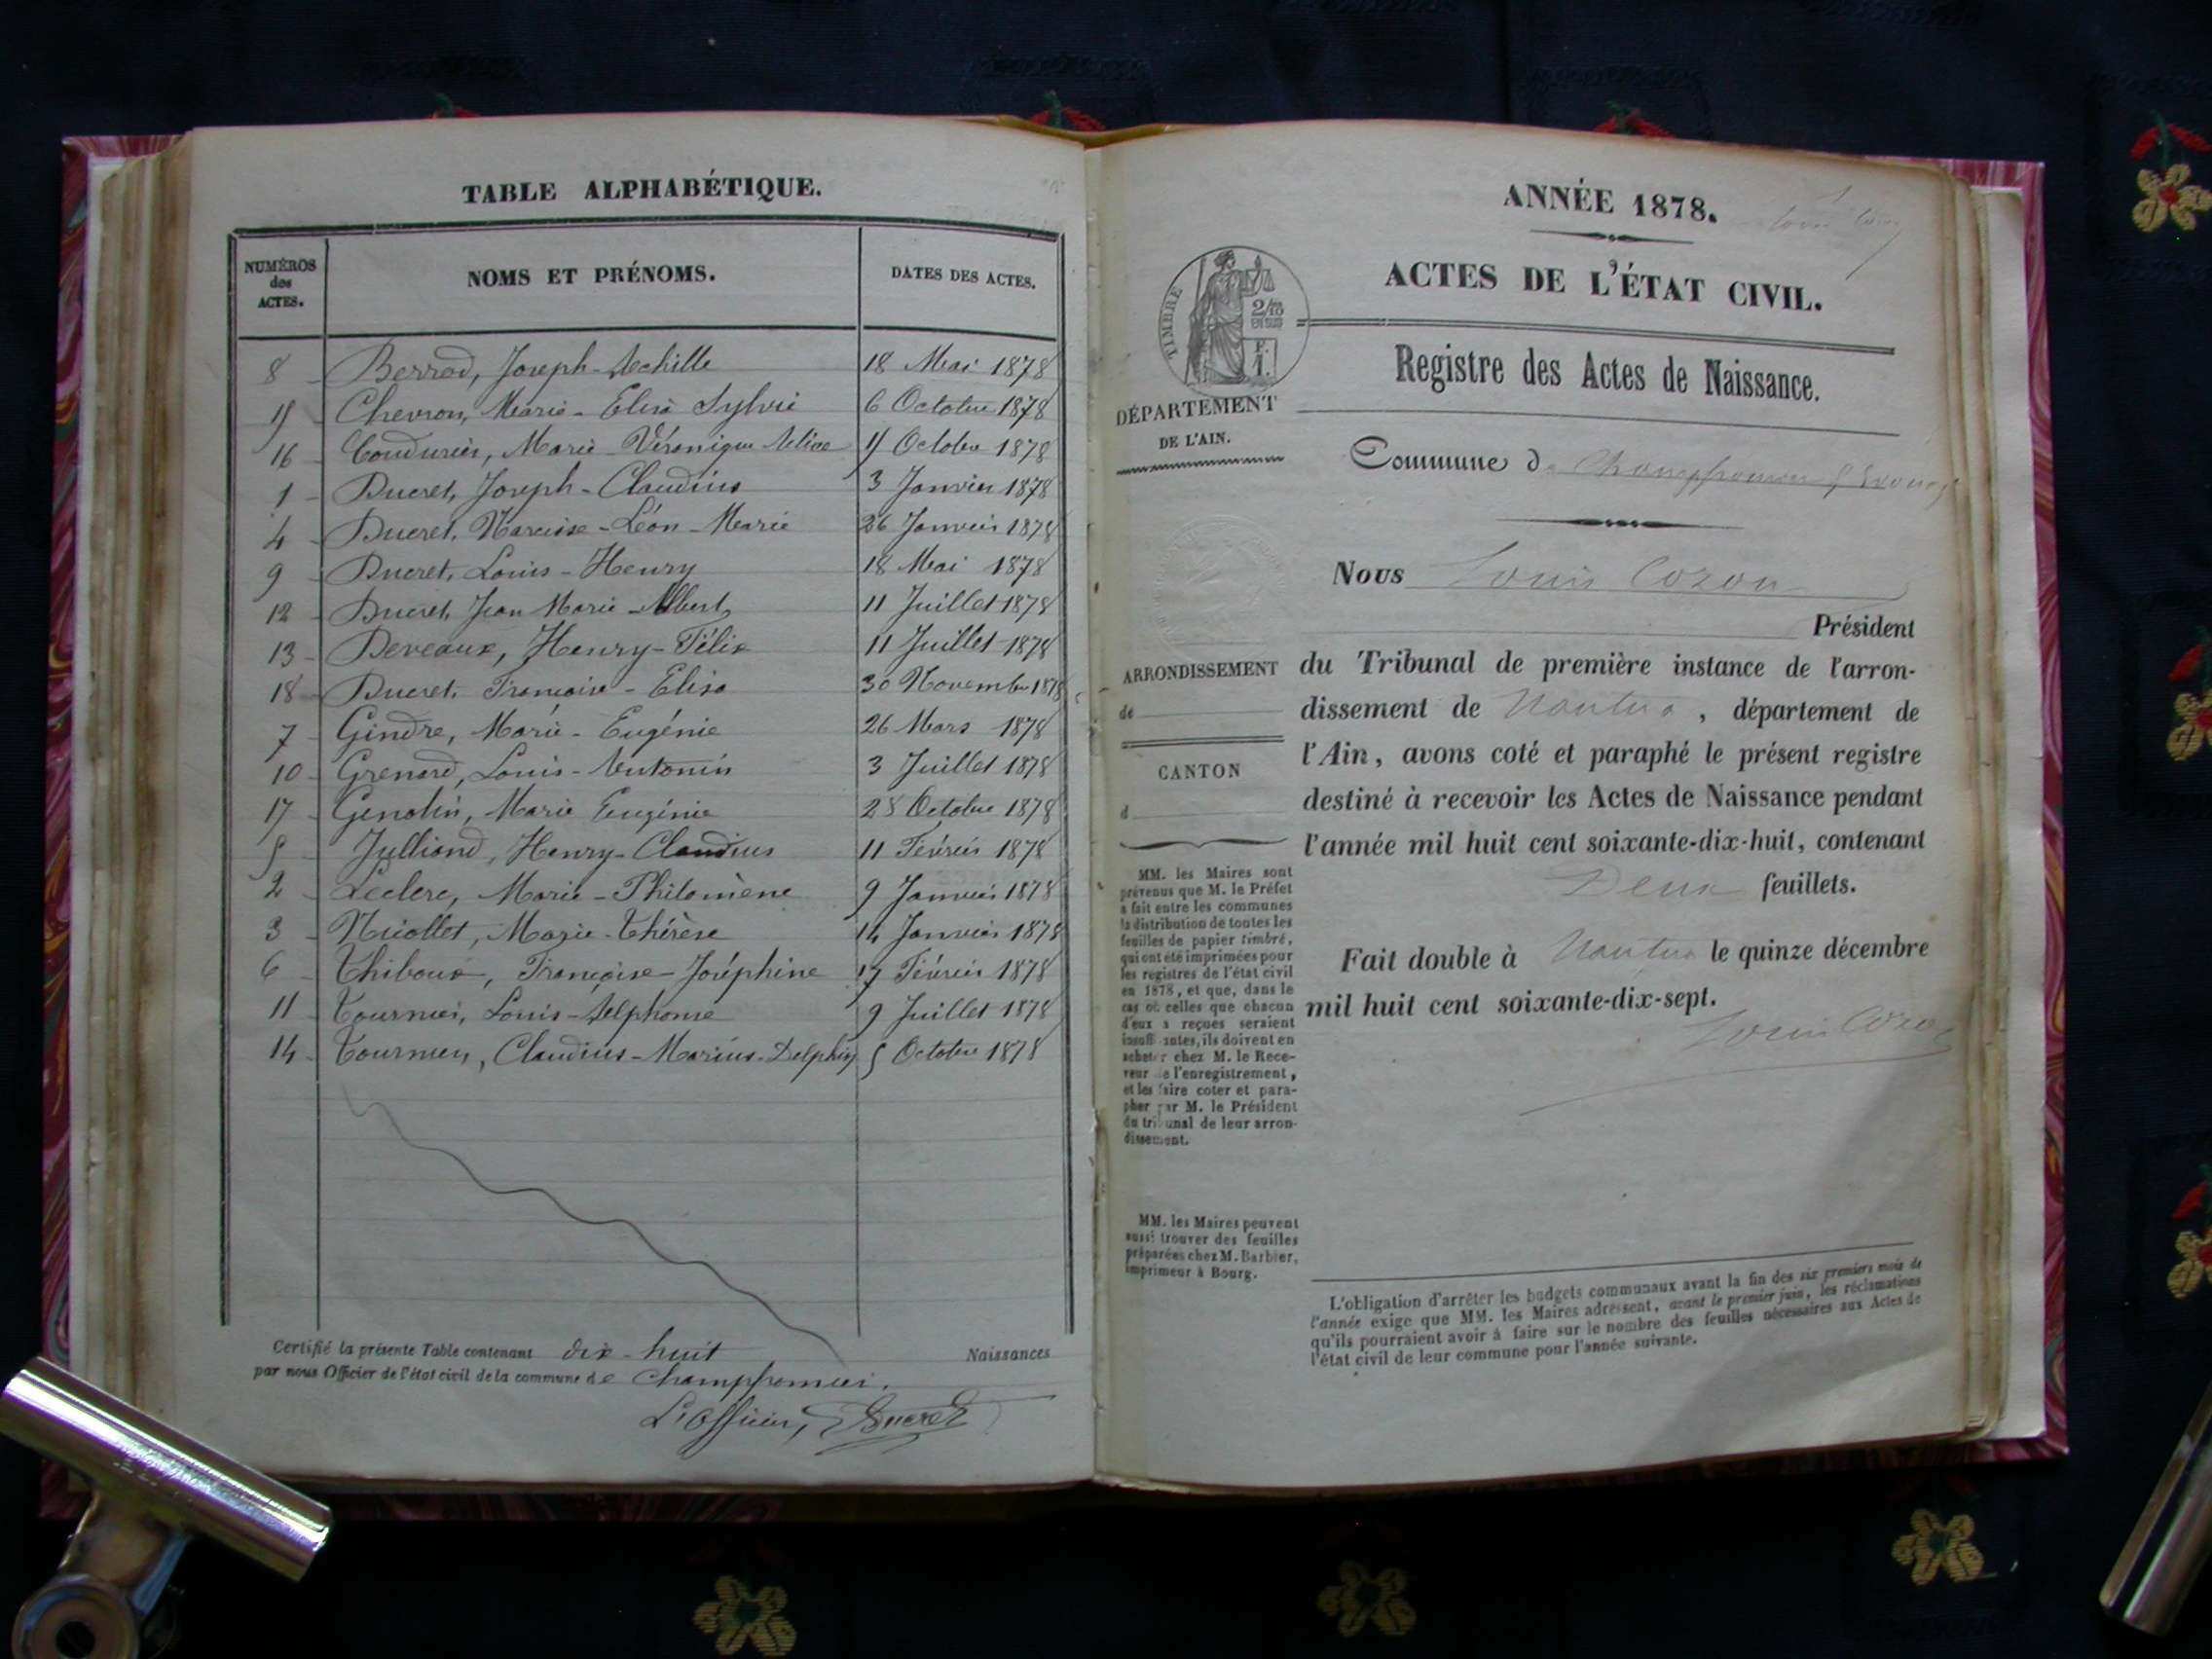 TABLE ALPHABÉTIQUE.
NUMÉROS
des
ACTES.
NOMS ET PRÉNOMS.
DATES DES ACTES.
8 Berrod, Joseph-Achille 18 Mai 1878
15 Chevron, Marie-Elisa Sylvie 6 Octobre 1878
16 Coudurier, Marie-Véronique 11 Octobre 1878
1 Ducret, Joseph-Claudius 3 Janvier 1878
4 Ducret, Narcisse-Léon-Marie 26 Janvier 1878
9 Ducret, Louis-Henry 18 Mai 1878
12 Ducret, Jean Marie-Albert 11 Juillet 1878
13 Deveaux, Henry-Félix 11 Juillet 1878
18 Ducret, Françoise-Elisa 30 Novembre 1878
7 Gindre, Marie-Eugénie 26 Mars 1878
10 Grenard, Louis-Antonin 3 Juillet 1878
17 Genolin, Marie Eugénie 28 Octobre 1878
5 Julliand, Henry-Claudius 11 Février 1878
2 Leclerc, Marie-Philomène 9 Janvier 1878
3 Nicollet, Marie-Thérèse 14 Janvier 1878
6 Thiboux, Françoise-Joséphine 17 Février 1878
11 Tournier, Louis-Alphonse 9 Juillet 1878
14 Tournier, Claudius-Marius-Delphin 5 Octobre 1878
Certifié la présente Table contenant dix-huit Naissances
par nous Officier de l'état civil de la commune de Champfromier.
L'officier, Ducret
ANNÉE 1878.
ACTES DE L'ÉTAT CIVIL.
TIMBRE
2/10
EN SUS
F.
1.
Registre des Actes de Naissance.
DÉPARTEMENT
DE L'AIN.
Commune de Champfromier
Nous Louis Cozon
Président
ARRONDISSEMENT
de
CANTON
d
du Tribunal de première instance de l'arron-
dissement de Nantua, département de
l'Ain, avons coté et paraphé le présent registre
destiné à recevoir les Actes de Naissance pendant
l'année mil huit cent soixante-dix-huit, contenant
Deux feuillets.
Fait double à Nantua le quinze décembre
mil huit cent soixante-dix-sept.
Louis Cozon
MM. les Maires sont
prévenus que M. le Préfet
a fait entre les communes
la distribution de toutes les
feuilles de papier timbré,
qui ont été imprimées pour
les registres de l'état civil
en 1878, et que, dans le
cas où celles que chacun
d'eux a reçues seraient
insuffisantes, ils doivent en
acheter chez M. le Rece-
veur de l'enregistrement,
et les faire coter et para-
pher par M. le Président
du tribunal de leur arron-
dissement.
MM. les Maires peuvent
aussi trouver des feuilles
préparées chez M. Barbier,
imprimeur à Bourg.
L'obligation d'arrêter les budgets communaux avant la fin des six premiers mois de
l'année exige que MM. les Maires adressent, avant le premier juin, les réclamations
qu'ils pourraient avoir à faire sur le nombre des feuilles nécessaires aux Actes de
l'état civil de leur commune pour l'année suivante.